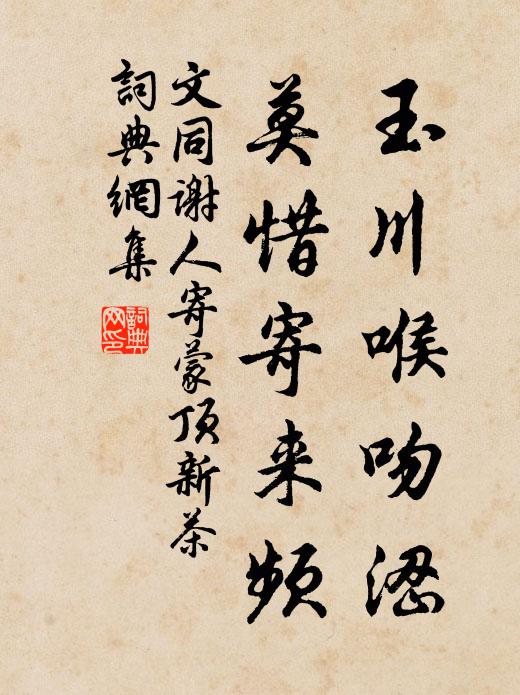 玉川喉吻涩
莫惜寄来频
文同谢人寄蒙顶新茶
詞典網集
詞典
网印